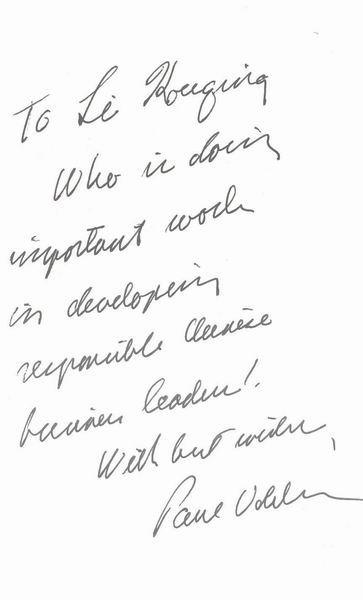 To Li Hongqing
Who is doing
important work
in developing
responsible Chinese
business leaders!
With best wishes,
Paul